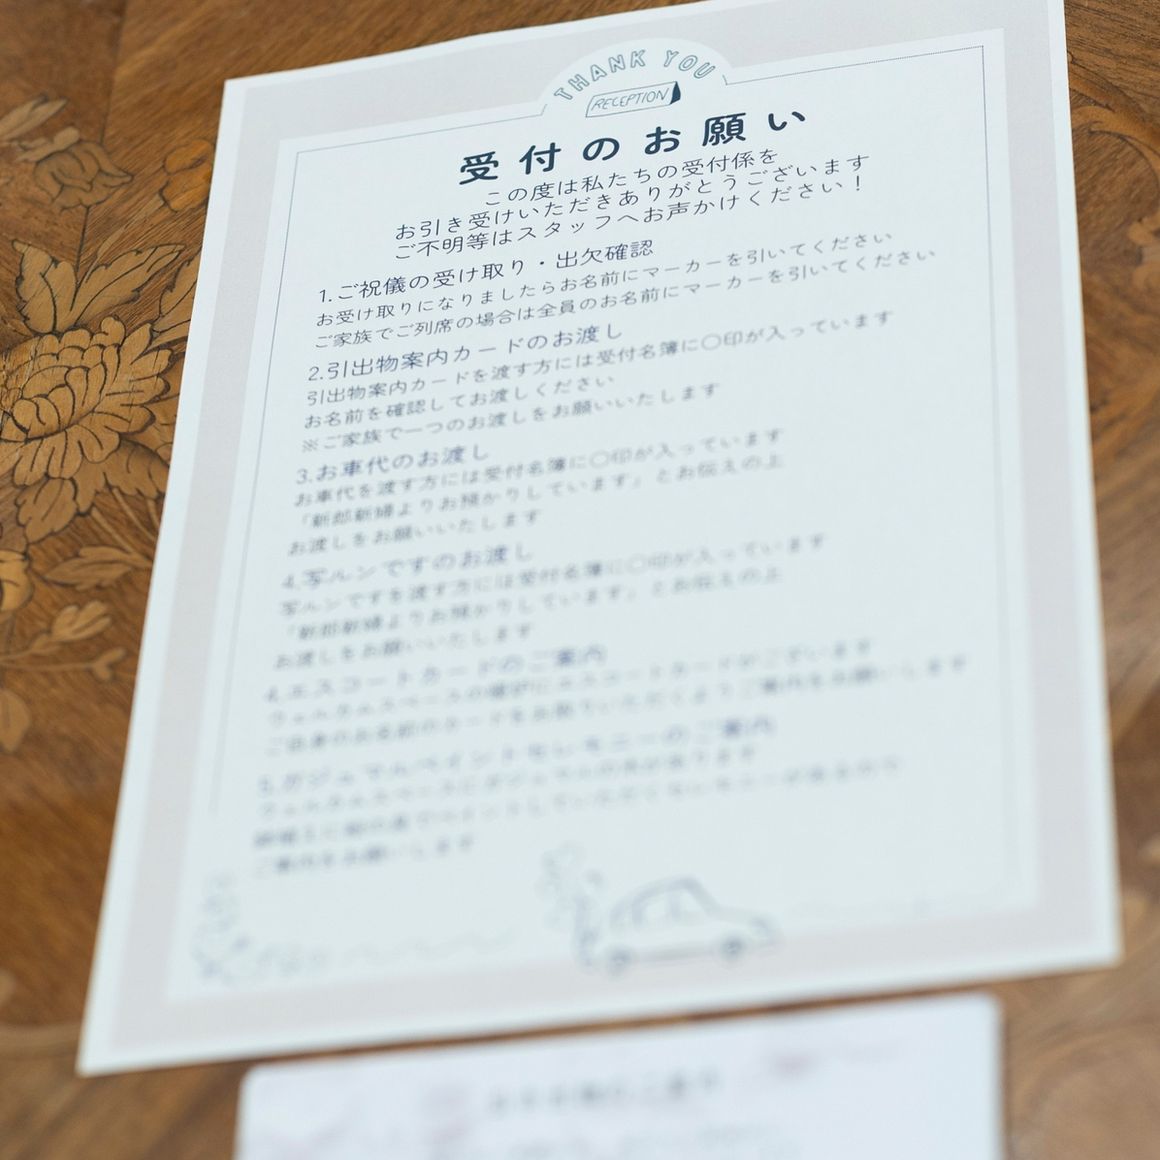 THANK YOU
RECEPTION
受付のお願い
この度は私たちの受付係を
お引き受けいただきありがとうございます
ご不明等はスタッフへお声かけください！
1.ご祝儀の受け取り・出欠確認
お受け取りになりましたらお名前にマーカーを引いてください
ご家族でご列席の場合は全員のお名前にマーカーを引いてください
2.引出物案内カードのお渡し
引出物案内カードを渡す方には受付名簿に〇印が入っています
お名前を確認してお渡しください
※ご家族で一つのお渡しをお願いいたします
3.お車代のお渡し
お車代を渡す方には受付名簿に〇印が入っています
「新郎新婦よりお預かりしています」とお伝えの上
お渡しをお願いいたします
4.写ルンですのお渡し
写ルンですを渡す方には受付名簿に〇印が入っています
「新郎新婦よりお預かりしています」とお伝えの上
お渡しをお願いいたします
4.エスコートカードのご案内
ウェルカムスペースの
にエスコートカードがございます
ご自身のお名前のカードをお取りいただくようご案内をお願いします
5.ガジュマルペイントセレモニーのご案内
ご案内をお願いします